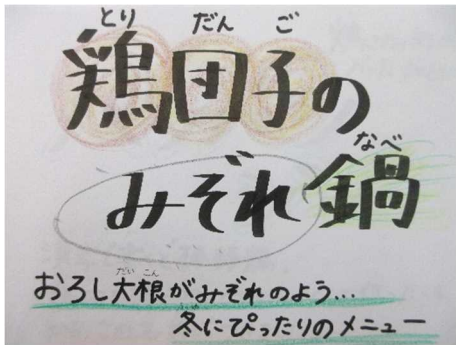 とり だん ご
鶏団子の
なべ
みぞれ鍋
だい こん
おろし大根がみぞれのよう…
冬にぴったりのメニュー